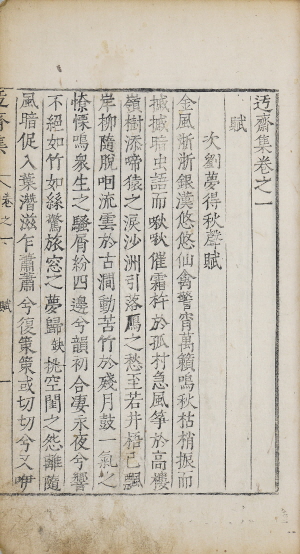 迃齋集卷之一
賦
次劉夢得秋聲賦
金風淅淅銀漢悠悠仙禽警宵萬籟鳴秋枯梢振而
摵摵暗虫語而啾啾催霜杵於孤村急風箏於高樓
嶺樹添啼猿之淚沙洲引落鴈之愁至若井梧已飄
岸柳隨脫咽流雲於古澗動苦竹於殘月鼓一氣之
憭慄鳴衆生之騷屑紛四邊兮韻初合凄永夜兮響
不絕如竹如絲驚旅窓之夢歸缺挑空閨之怨離隨
風暗促入葉潛滋乍蕭蕭兮復策策或切切兮又咿
齋集
卷之一
賦
一